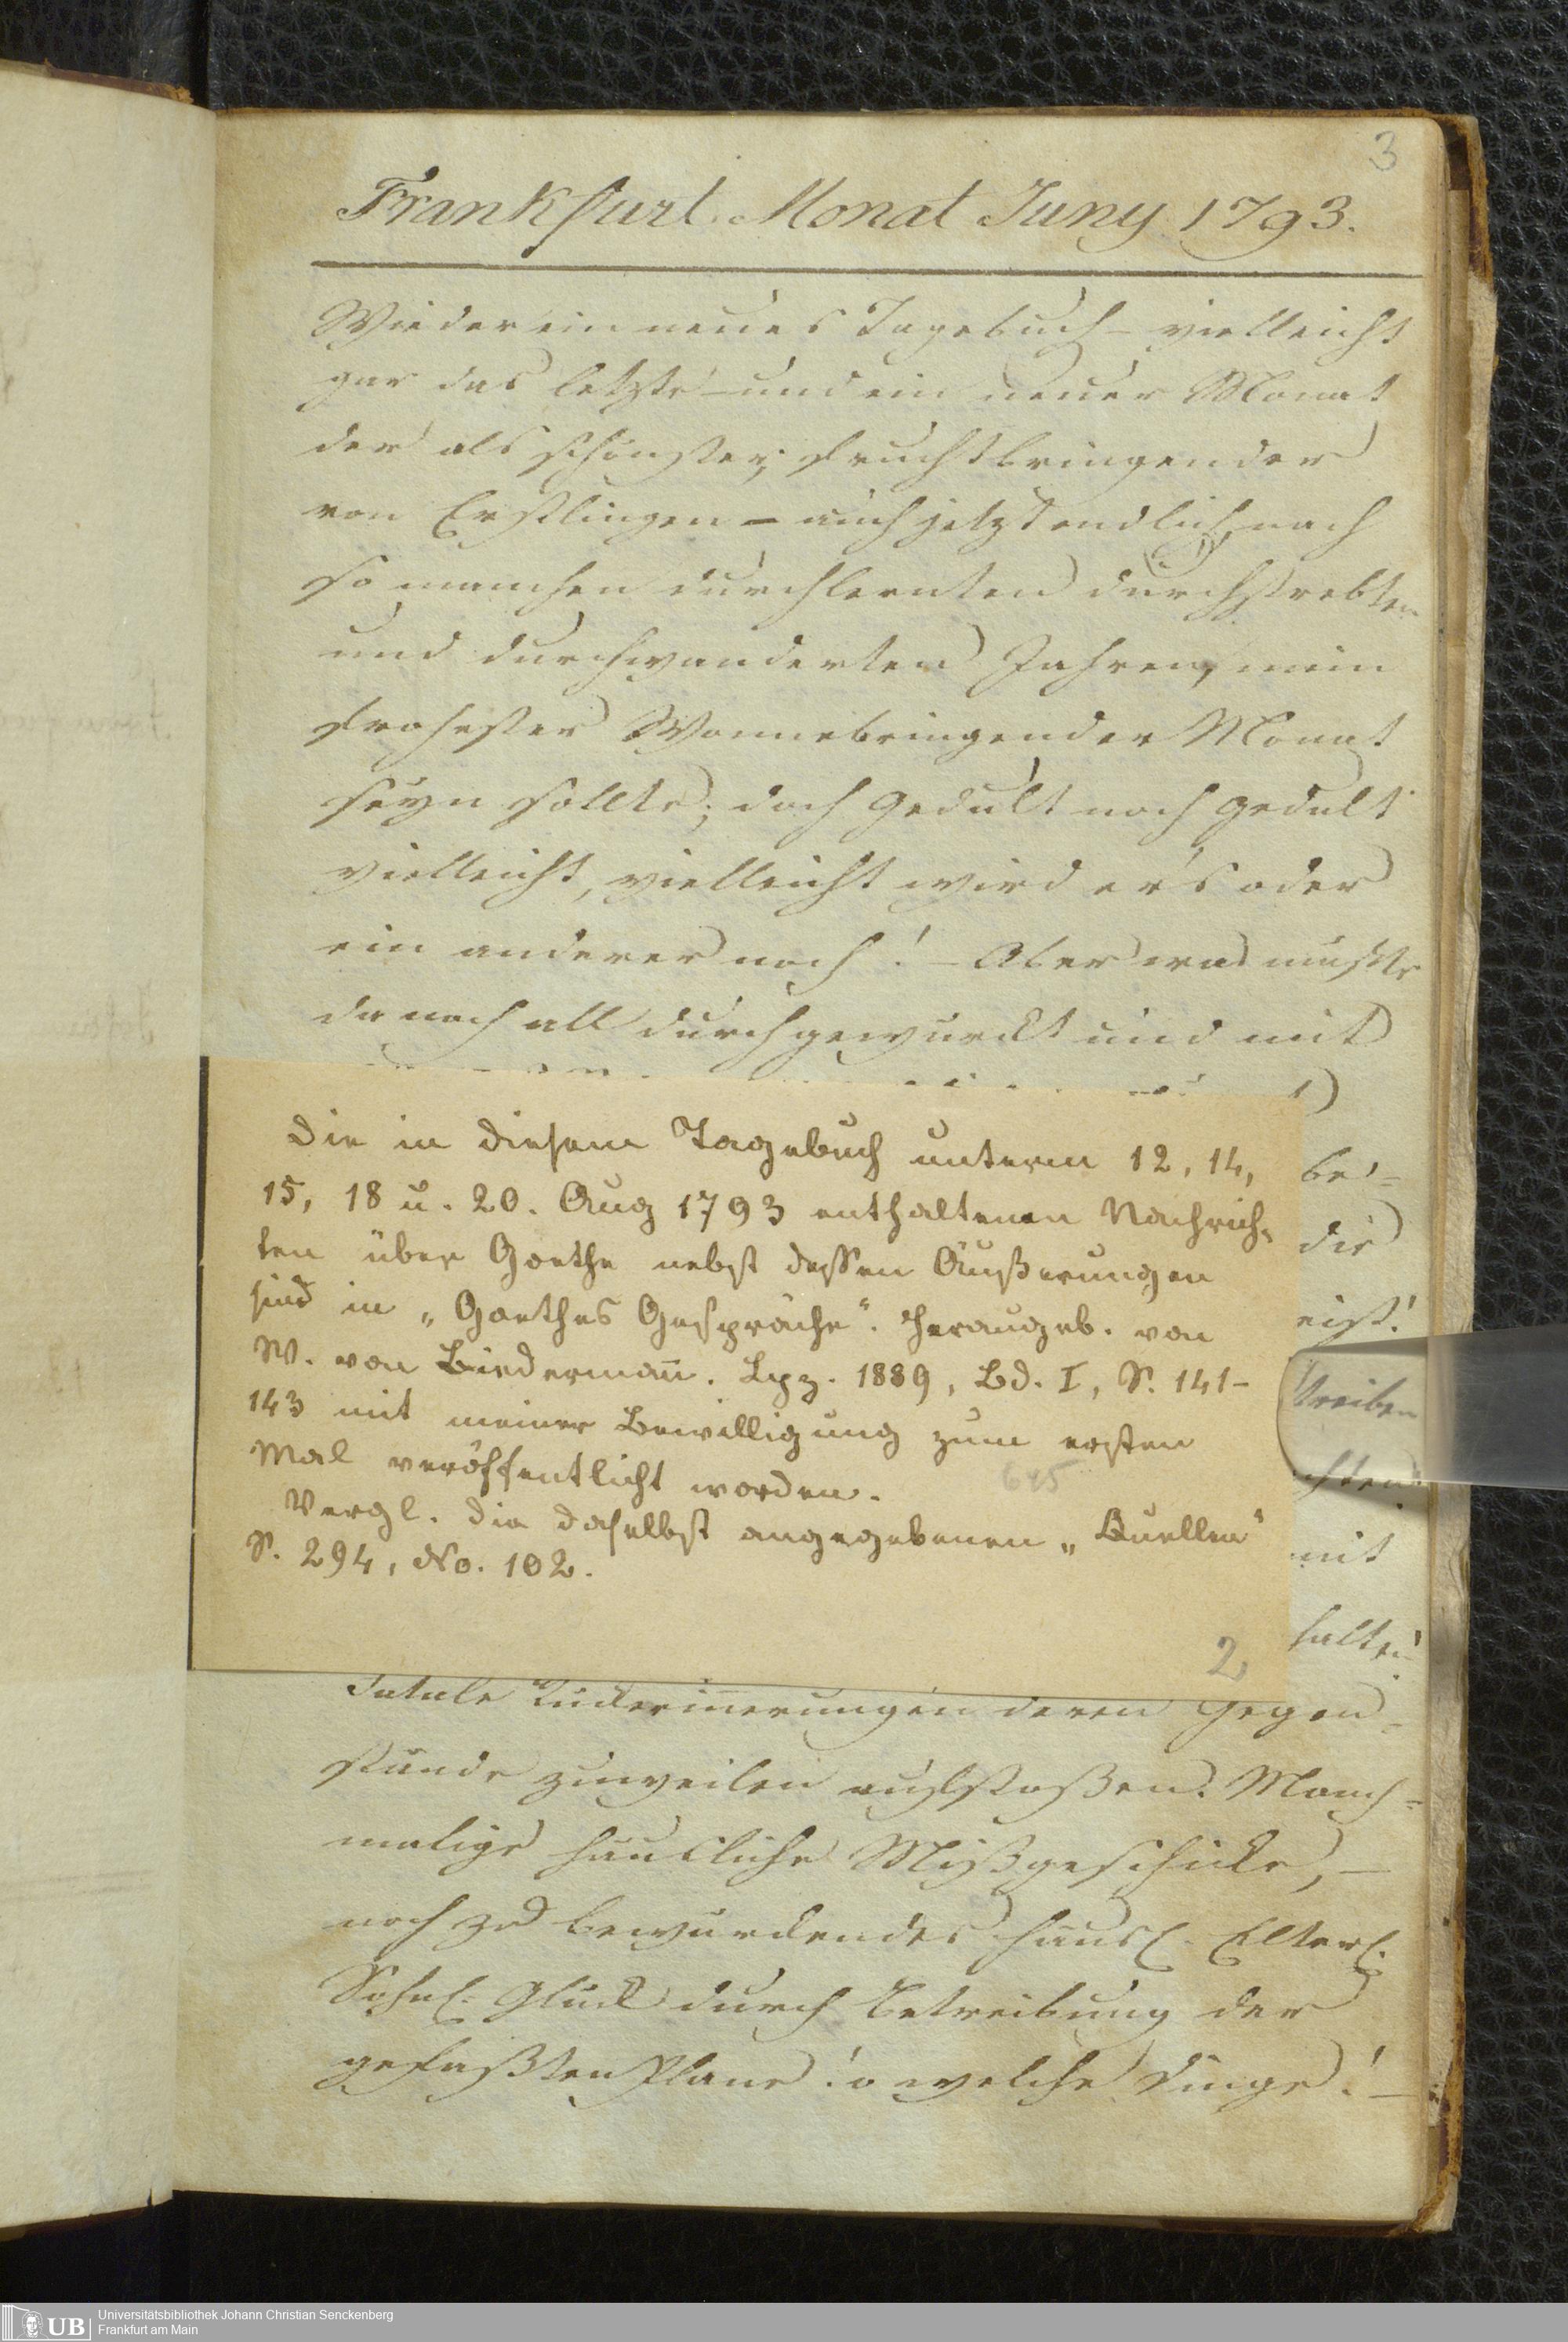 3
Frankfurt. Monat Juny 1793.
Wieder ein neues Tagebuch – vielleicht
gar das letzte – und ein neuer Monat
der als schönster, fruchtbringender
von Erstlingen – auch jetzt endlich nach
so manchen durchlernten durchstrebten
und durchwanderten Jahren, mein
frohester Wonnebringender Monat
seyn sollte; doch Gedult noch Gedult
vielleicht, vielleicht wird er's oder
ein anderer noch! – Aber was müßte
da noch all durchgewürckt und mit
Die in diesem Tagebuch unterm 12, 14,
15, 18 u. 20. Aug 1793 enthaltenen Nachrich-
ten über Goethe nebst dessen Äußerungen
sind in „Goethes Gespräche“. Herausgeb. von
W. von Biedermañ. Lpz. 1889, Bd. I, S. 141–
143 mit meiner Bewilligung zum ersten
Mal veröffentlicht worden.
645
Vergl. die daselbst angegebenen „Quellen“
S. 294, No. 102.
2
be-
die
eist!
treiben
chten
mit
halten
Fatale Rückerinnerungen deren Gegen-
stände zuweilen aufstoßen. Manch-
malige häusliche Mißgeschicke, –
noch zu bewürckendes häusl. Elterl.
Sohnl. Glück durch Betreibung der
gefaßten Plane! o welche Dinge! –
UB
Universitätsbibliothek Johann Christian Senckenberg
Frankfurt am Main